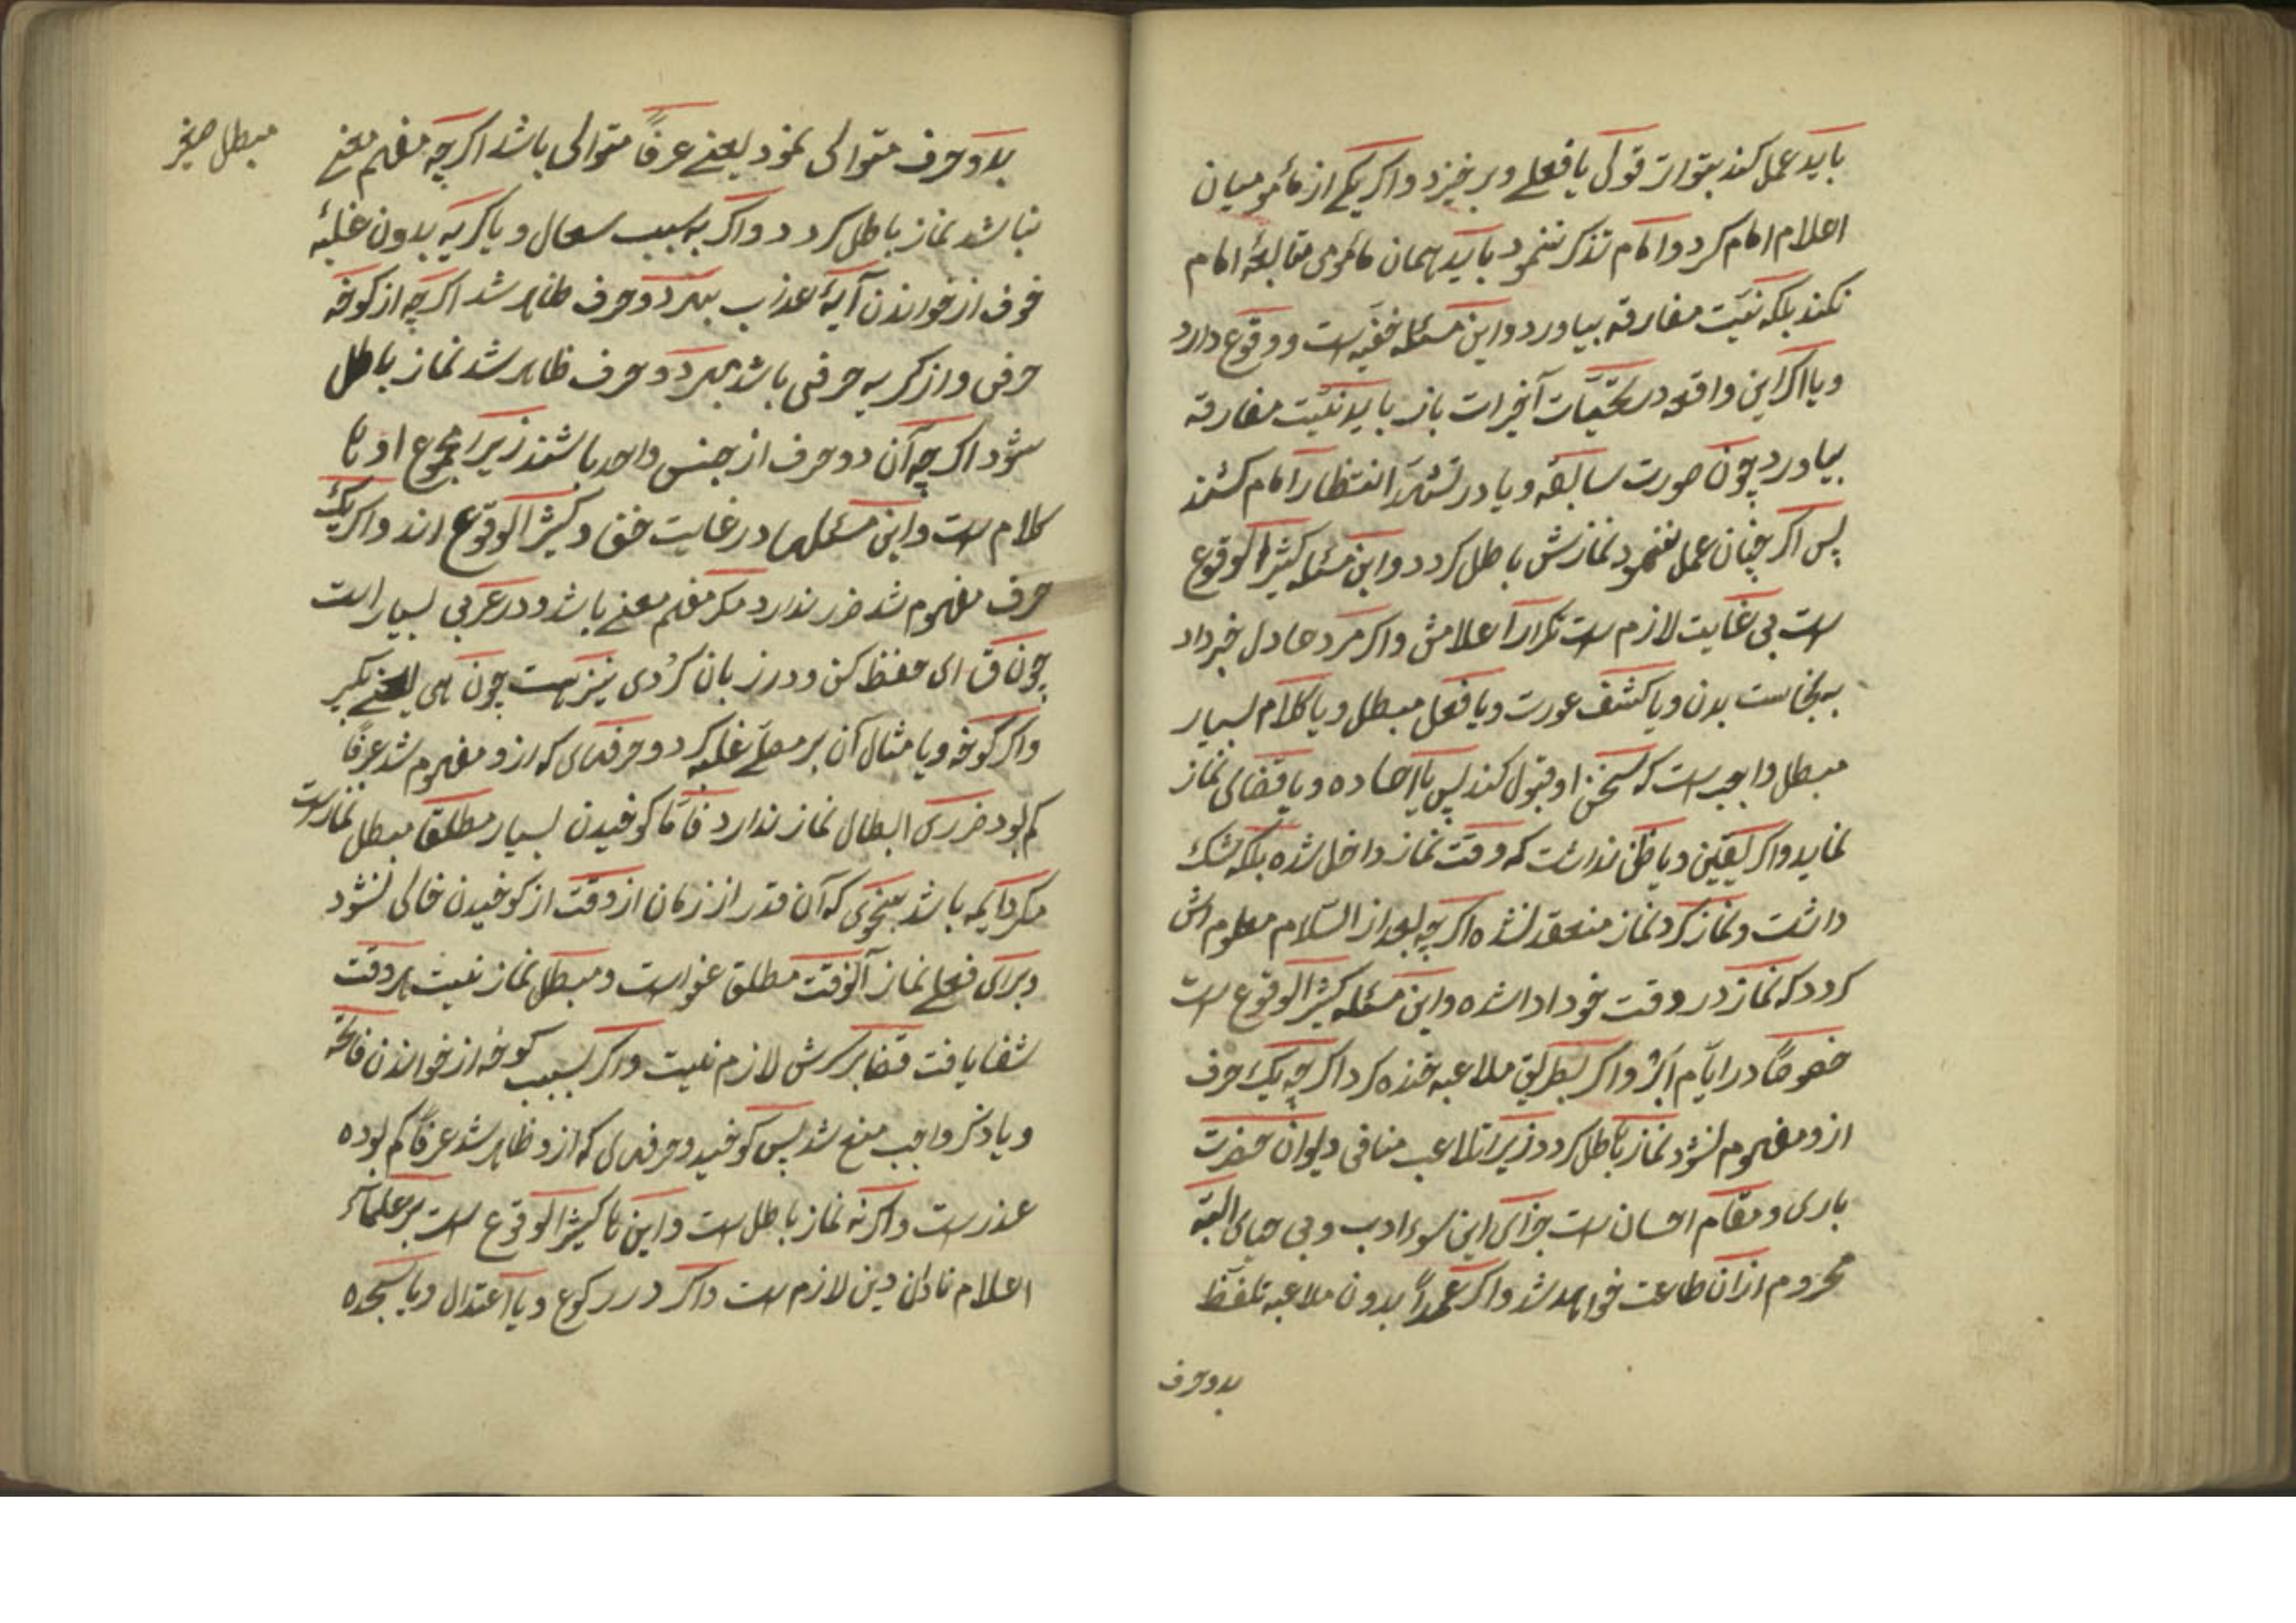 باید عمل کند بتواتر قولی یا فعلی و برخیزد و اکر یکی از مأمومیان
اعلام امام کرد و امام تذکر ننمود باید همان مأمومی متابعهٔ امام
نکند بلکه نیّت مفارقه بیاورد و این مسئله خفیّه است و وقوع دارد
و یا اکر این واقعه در تحیّات آخر است باز باید نیّت مفارقه
بیاورد چون صورت سابقه و یا در تشهّد انتظار امام کشند
پس اکر چنان عمل ننمود نمازش باطل کردد و این مسئله کثیر الوقوع
است بی غایت لازم است تکراراً اعلامش و اکر مرد عادل خبر داد
به نجاست بدن و یا کشف عورت و یا فعل مبطل و یا کلام بسیار
مبطل واجب است که سخن او قبول کند پس یا اعاده و یا قضای نماز
نماید و اکر یقین و یا ظن نداشت که وقت نماز داخل شده بلکه شک
داشت و نماز کرد نماز منعقد نشده اکر چه بعد از السّلام معلوم اش
کردد که نماز در وقت خود ادا شده و این مسئله کثیر الوقوع است
خصوصًا در ایّام ابر و اکر بطریق ملاعبه خنده کرد اکر چه یک حرف
ازو مفهوم نشود نماز باطل کردد زیرا تلاعب منافی دیوان حضرت
باری و مقام احسان است جزای این سوء ادب و بی حیای البته
محروم از آن طاعت خواهد شد و اکر عمداً بدون ملاعبه تلفّظ
بدو حرف
بدو حرف متوالی نمود یعنی عرفاً متوالی باشد اکر چه مفهم معنی
نباشد نماز باطل کردد و اکر به سبب سعال و یا کریه بدون غلبهٔ
خوف از خواندن آیهٔ عذاب بهر دو حرف ظاهر شد اکر چه از کوخه
حرفی و از کریه حرفی باشد بهر دو حرف ظاهر شد نماز باطل
شود اکر چه آن دو حرف از جنس واحد باشند زیرا مجموع اوها
کلام است و این مسئلها در غایت خفی و کثیر الوقوع اند و اکر یک
حرف مفهوم شد ضرر ندارد مکر مفهم معنی باشد و در عربی بسیار است
چون ق ای حفظ کن و در زبان کُردی نیز هست چون هی یعنی بکیر
و اکر کوخه و یا مثال آن بر مصلّی غلبه کرد و حرفهای که ازو مفهوم شد عرفاً
کم بود ضرری ابطال نماز ندارد فامّا کوخیدن بسیار مطلقا مبطل نماز است
مکر دایمه باشد بنحوی که آن قدر از زمان از وقت از کوخیدن خالی نشود
برای فعلی نماز آنوقت مطلق عفو است و مبطل نماز نیست هر وقت
شفا یافت قضا بر سرش لازم نیست و اکر بسبب کوخه از خواندن فاتحه
و یا ذکر واجب منع شد پس کوخید و حرفهای که ازو ظاهر شد عرفاً کم بوده
عذر است و اکرنه نماز باطل است و این ها کثیر الوقوع است بر علماء
اعلام نادان دین لازم است و اکر در رکوع و یا اعتدال و یا سجده